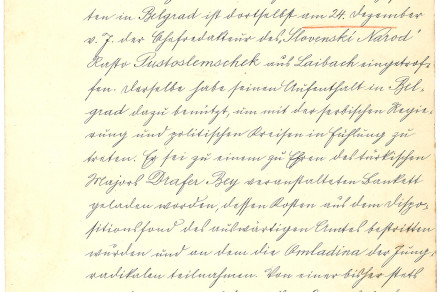 ten in Belgrad ist dortselbst am 24. Dezember
v. J. der Chefredakteur des „Slovenski Narod"
Rasto Pustoslemschek aus Laibach eingetrof-
fen. Derselbe habe seinen Aufenthalt in Bel-
grad dazu benützt, um mit der serbischen Regie-
rung und politischen Kreisen in Fühlung zu
treten. Er sei zu einem zu Ehren des türkischen
Majors Drafer Bey veranstalteten Bankett
geladen worden, dessen Kosten aus dem Dispo-
sitionsfond des auswärtigen Amtes bestritten
wurden und an dem die Omladina der Jung-
radikalen teilnahmen. Von einer bisher stets